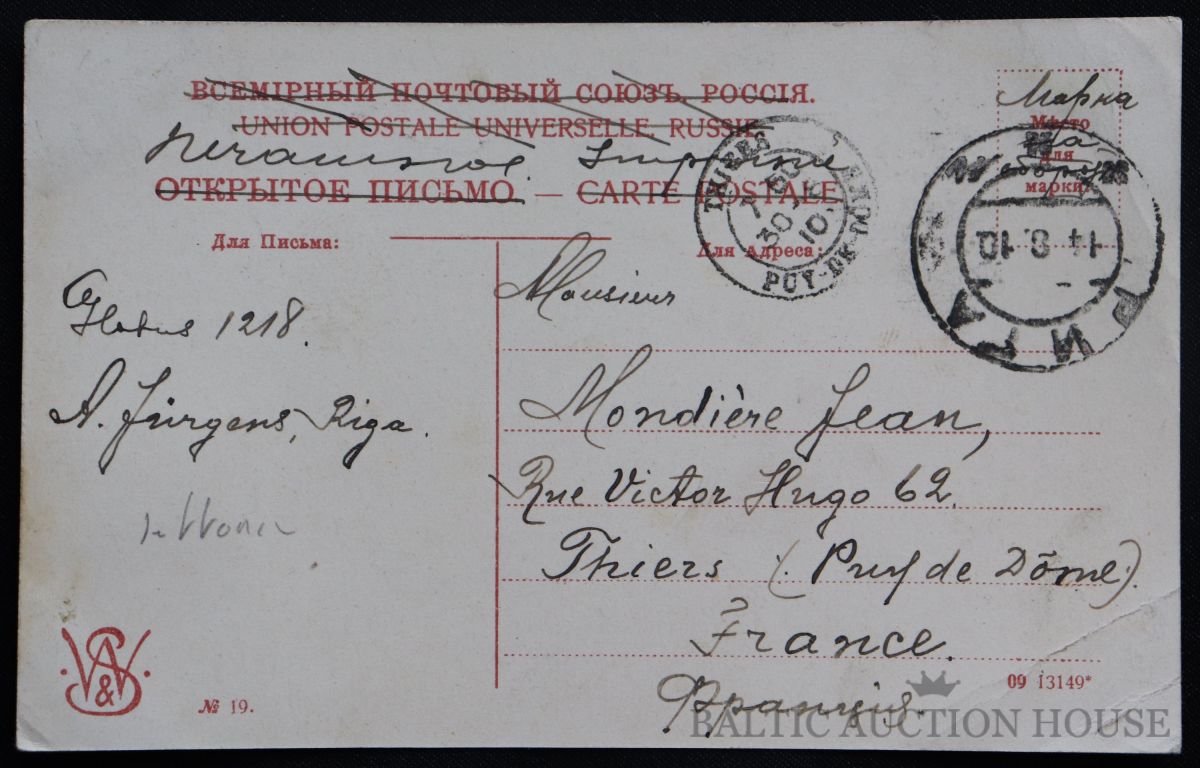 ВСЕМІРНЫЙ ПОЧТОВЫЙ СОЮЗЪ. РОССІЯ.
UNION POSTALE UNIVERSELLE. RUSSIE.
Печатное. Imprimé
ОТКРЫТОЕ ПИСЬМО. — CARTE POSTALE
Марка
Мѣсто
на
для
оборотѣ
марки
THIERS
30
10
PUY-DE-DOME
14 8.10
РИГА
Для Письма:
Для Адреса:
Globus 1218.
A. Jürgens, Riga.
Monsieur
Mondière Jean,
Rue Victor Hugo 62.
Thiers (Puy de Dôme).
France.
Франція.
№ 19.
09 13149*
BALTIC AUCTION HOUSE